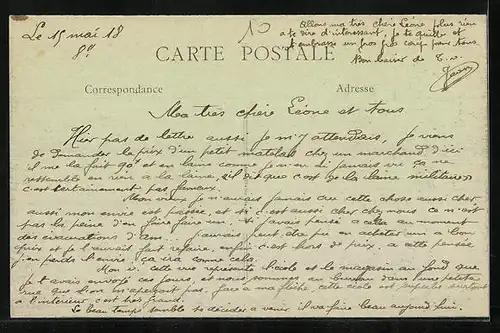 Le 15 mai 18
Allons ma très chère Léone plus rien
à te dire d'intéressant, je te quitte et
t'embrasse un gros gros coup pour tous
Bon baiser de T.
Jean
CARTE POSTALE
Correspondance
Adresse
Ma très chère Léone et tous
Hier pas de lettre aussi je m'y attendais, je viens
de demander le prix d'un petit matelas chez un marchand d'ici
il me la fait 90f et en laine comme je n'en ai jamais vu ça ne
ressemble en rien à la laine, il dit que c'est de la laine militaire
c'est certainement pas fameux.
Mon vieux je n'aurais jamais cru cette chose aussi cher
aussi mon envie est passée, et si c'est aussi cher chez nous ce n'est
pas la peine d'en faire faire. Si j'avais pensé à cela au moment
des évacuations d'am. pouvais peut être pu en acheter un à bon
prix et je l'aurais fait refaire, enfin c'est hors de prix, à cette pensée
j'en perds l'envie, ça ira comme cela.
Mon v. cette vue représente l'école et le magasin au fond que
je t'avais envoyé ces jours, et nous sommes au bureau dans une petite
rue que l'on n'aperçoit pas, face à ma flèche, cette école est superbe surtout
à l'intérieur c'est très grand.
Le beau temps semble se décider à venir il va faire beau aujourd'hui.